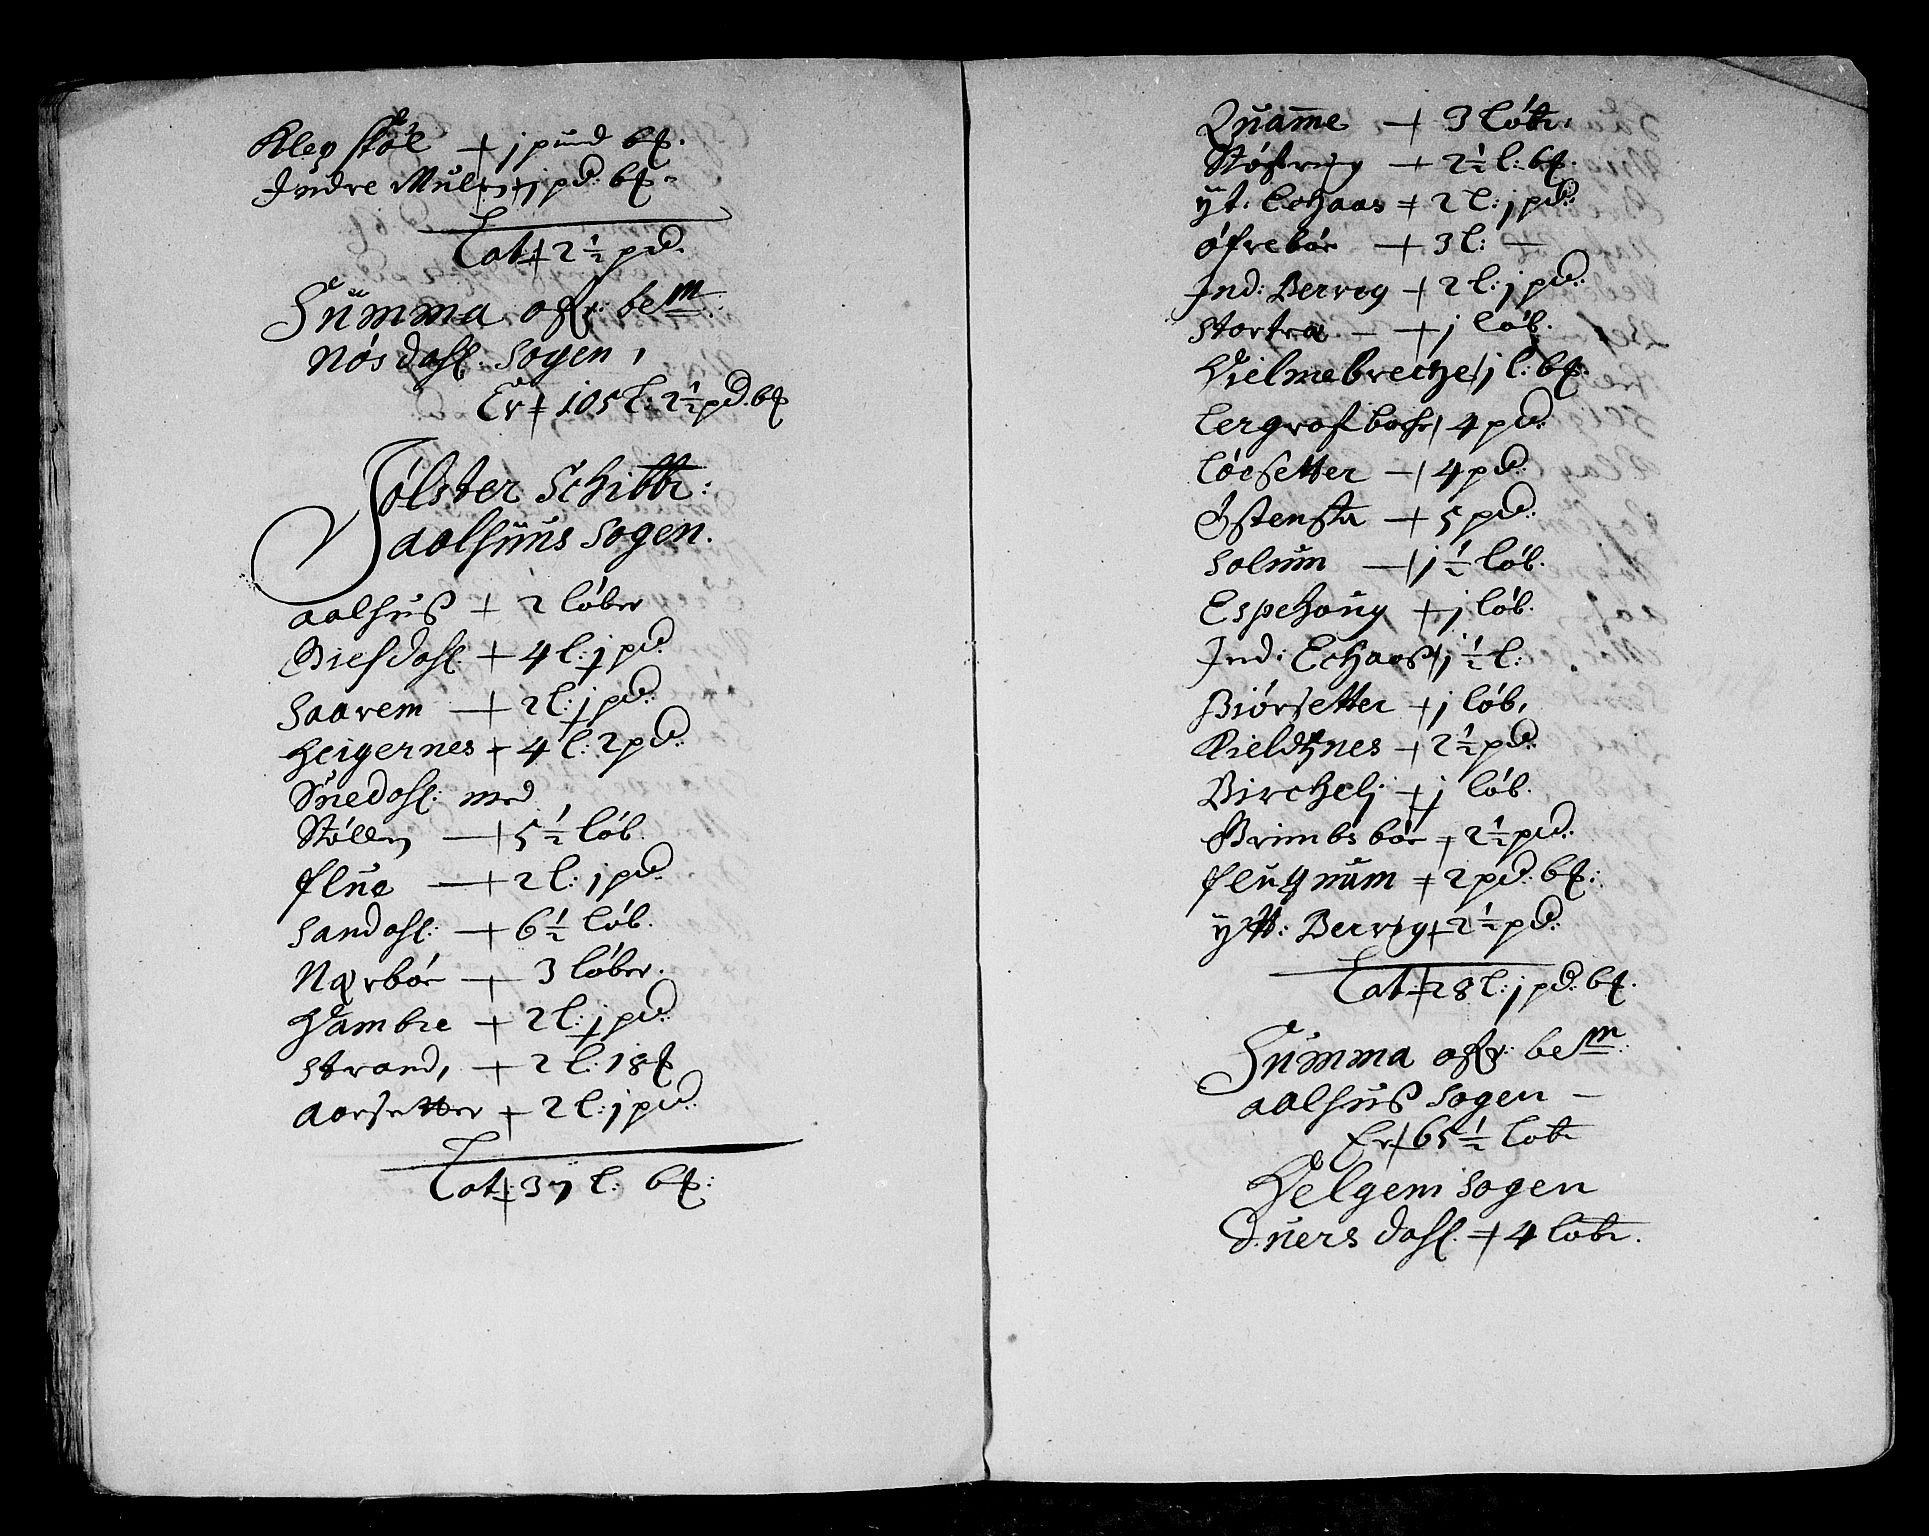 Kleg stöl + j pund bŧ.
Indre Mule + j pd: bŧ.
Lat: + 2 1/2 pd.
Summa ofr: bem:
Nösdahl: sogen,
Er + 105 l: 2 1/2 pd. bŧ
Jölster Schibbr:
aalhuus sogen.
aalhuß + 2 löber
Biefdahl: + 4 l: j pd:
Saarem + 2 l: j pd:
Heigernes + 4 l: 2 pd:
Snedahl: med
Stöllen + 5 1/2 löb.
flue + 2 l: j pd:
Sandahl: + 6 1/2 löb.
Nærbör + 3 löber.
Hambre + 2 l: j pd:
Strand, + 2 l: 18 ŧ
Aarsetter + 2 l: j pd:
Lat: + 37 l: bŧ:
Quamme + 3 löbr.
Stöfring + 2 1/2 l: bŧ.
yt: Echaas + 2 l: j pd:
öfrebör + 3 l: —
Ind: Berreg + 2 l: j pd:
Stortræ — + j löb.
Hielmebreche + j l: bŧ.
Lergrofbach + 4 pd:
Löesetter + 4 pd:
Östensta + 5 pd:
Solum + j 1/2 löb.
Espehoug + j löb.
Ind: Echaaß + j 1/2 l:
Biörsetter + j löb,
Kieldßnes + 2 1/2 pd:
Birchelj + j löb.
Brimbs bör + 2 1/2 pd:
flugnum + 2 pd: bŧ:
ytt: Berreg + 2 1/2 pd:
Lat: + 28 l: j pd: bŧ.
Summa ofr: bem:
aalhuß sogen —
Er + 65 1/2 löbr
Helgem sogen
Duers dahl: + 4 löbr.